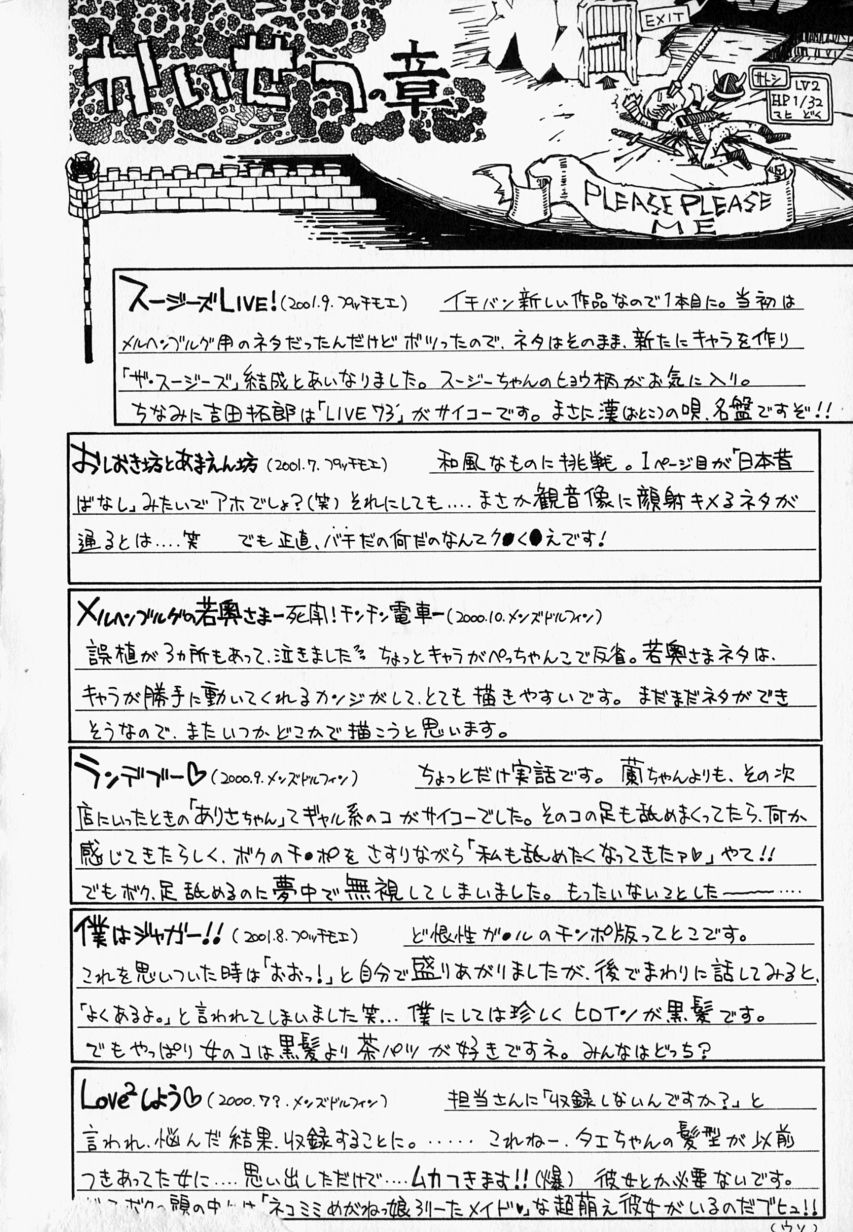 かいせつの章
EXIT
サトシ LV2
HP 1/32
マヒ どく
PLEASE PLEASE
ME
スージーズLIVE!(2001.9.プッチモエ) イチバン新しい作品なので1本目に。当初は
メルヘンブルゲ用のネタだったんだけどボツったので、ネタはそのまま、新たにキャラを作り
「ザ・スージーズ」結成とあいなりました。スージーちゃんのヒョウ柄がお気に入り。
ちなみに吉田拓郎は「LIVE73'」がサイコーです。まさに漢(おとこ)の唄、名盤ですぞ!!
おしおき坊とあまえん坊(2001.7.プッチモエ) 和風なものに挑戦。1ページ目が「日本昔
ばなし」みたいでアホでしょ?(笑)それにしても....まさか観音像に顔射キメるネタが
通るとは....笑 でも正直、バチだの何だのなんてク●く●えです!
メルヘンブルゲの若奥さまー死闘!チンチン電車ー(2000.10.メンズドルフィン)
誤植が3ヵ所もあって、泣きました ちょっとキャラがぺっちゃんこで反省。若奥さまネタは、
キャラが勝手に動いてくれるカンジがして、とても描きやすいです。まだまだネタができ
そうなので、またいつかどこかで描こうと思います。
ランデブー♡(2000.9.メンズドルフィン) ちょっとだけ実話です。蘭ちゃんよりも、その次
店にいったときの「ありさちゃん」てギャル系のコがサイコーでした。そのコの足も舐めまくってたら、何か
感じてきたらしく、ボクのチ●ポをさすりながら「私も舐めたくなってきたァ♥」やて!!
でもボク、足舐めるのに夢中で無視してしまいました。もったいないことした〜〜〜....
僕はジャガー!!(2001.8.プッチモエ) ど根性ガ●ルのチンポ版ってとこです。
これを思いついた時は「おおっ!」と自分で盛りあがりましたが、後でまわりに話してみると、
「よくあるよ。」と言われてしまいました笑... 僕にしては珍しくヒロインが黒髪です。
でもやっぱり女のコは黒髪より茶パツが好きですネ。みんなはどっち?
Love²しよう♡(2000.7?.メンズドルフィン) 担当さんに「収録しないんですか?」と
言われ、悩んだ結果、収録することに。......これねー、タエちゃんの髪型が以前
つきあってた女に....思い出しただけで....ムカつきます!!(爆) 彼女とか必要ないです。
ボクの頭の中には「ネコミミめがねっ娘ろりーたメイド♥」な超萌え彼女がいるのだブヒュ!!
(ウソ)